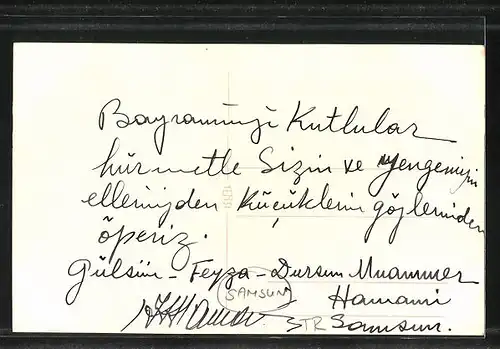 Bayramınızı Kutlular
hürmetle Sizin ve yengemizin
ellerinizden Küçüklerin gözlerinden
öperiz.
Gülsün - Feyza - Dursun Muammer
SAMSUN Hamami
STR Samsun.